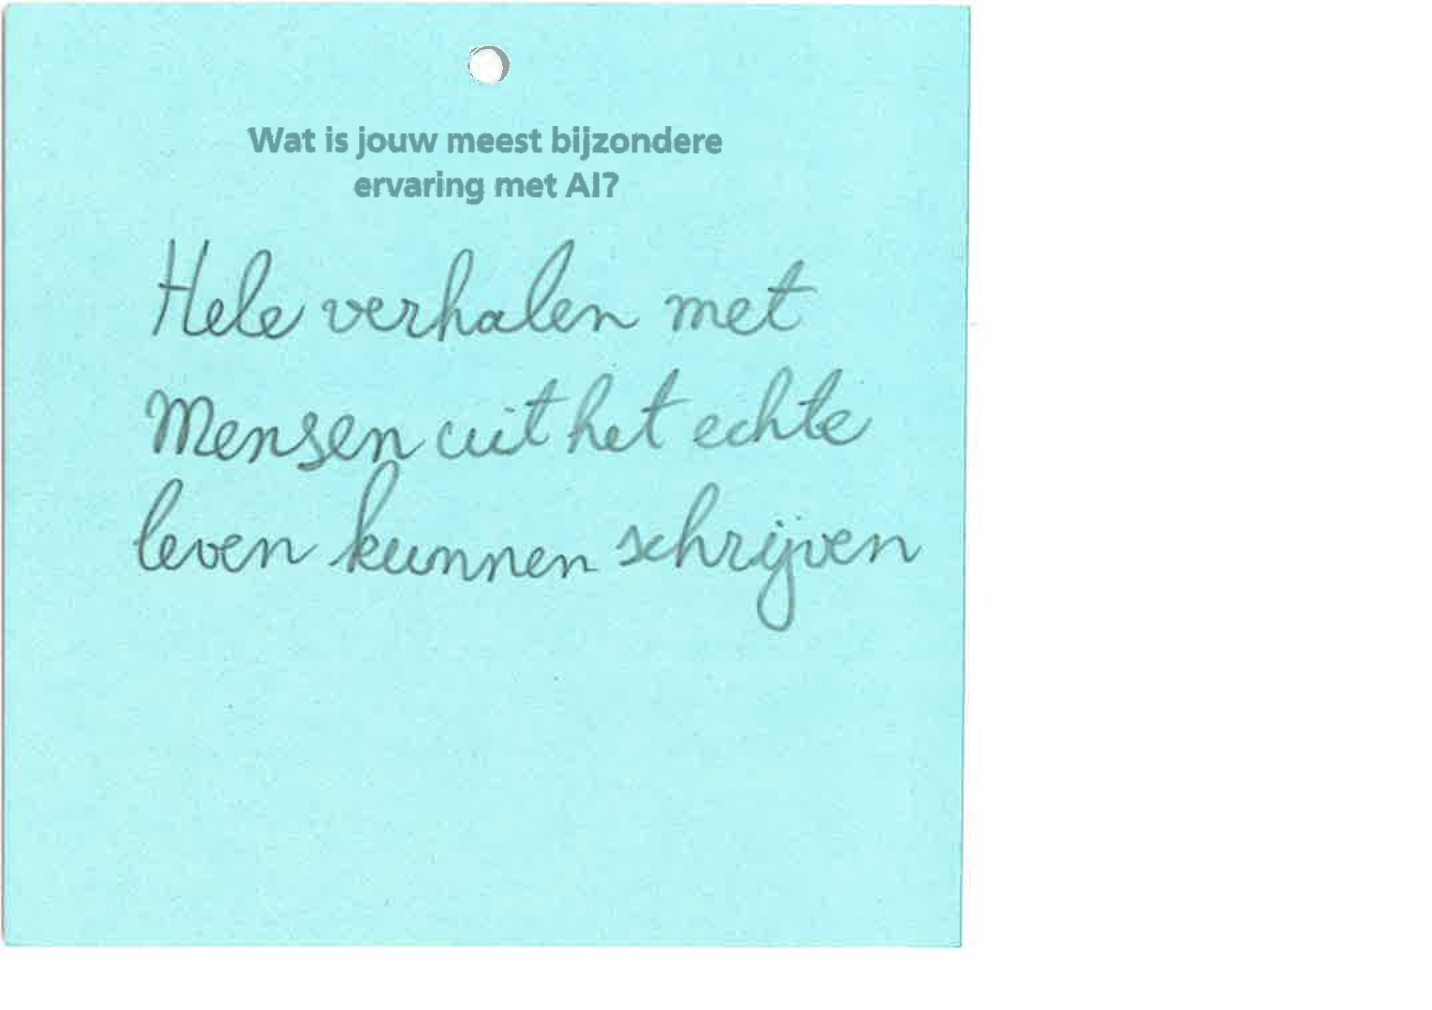 Wat is jouw meest bijzondere
ervaring met AI?
Hele verhalen met
Mensen uit het echte
leven kunnen schrijven